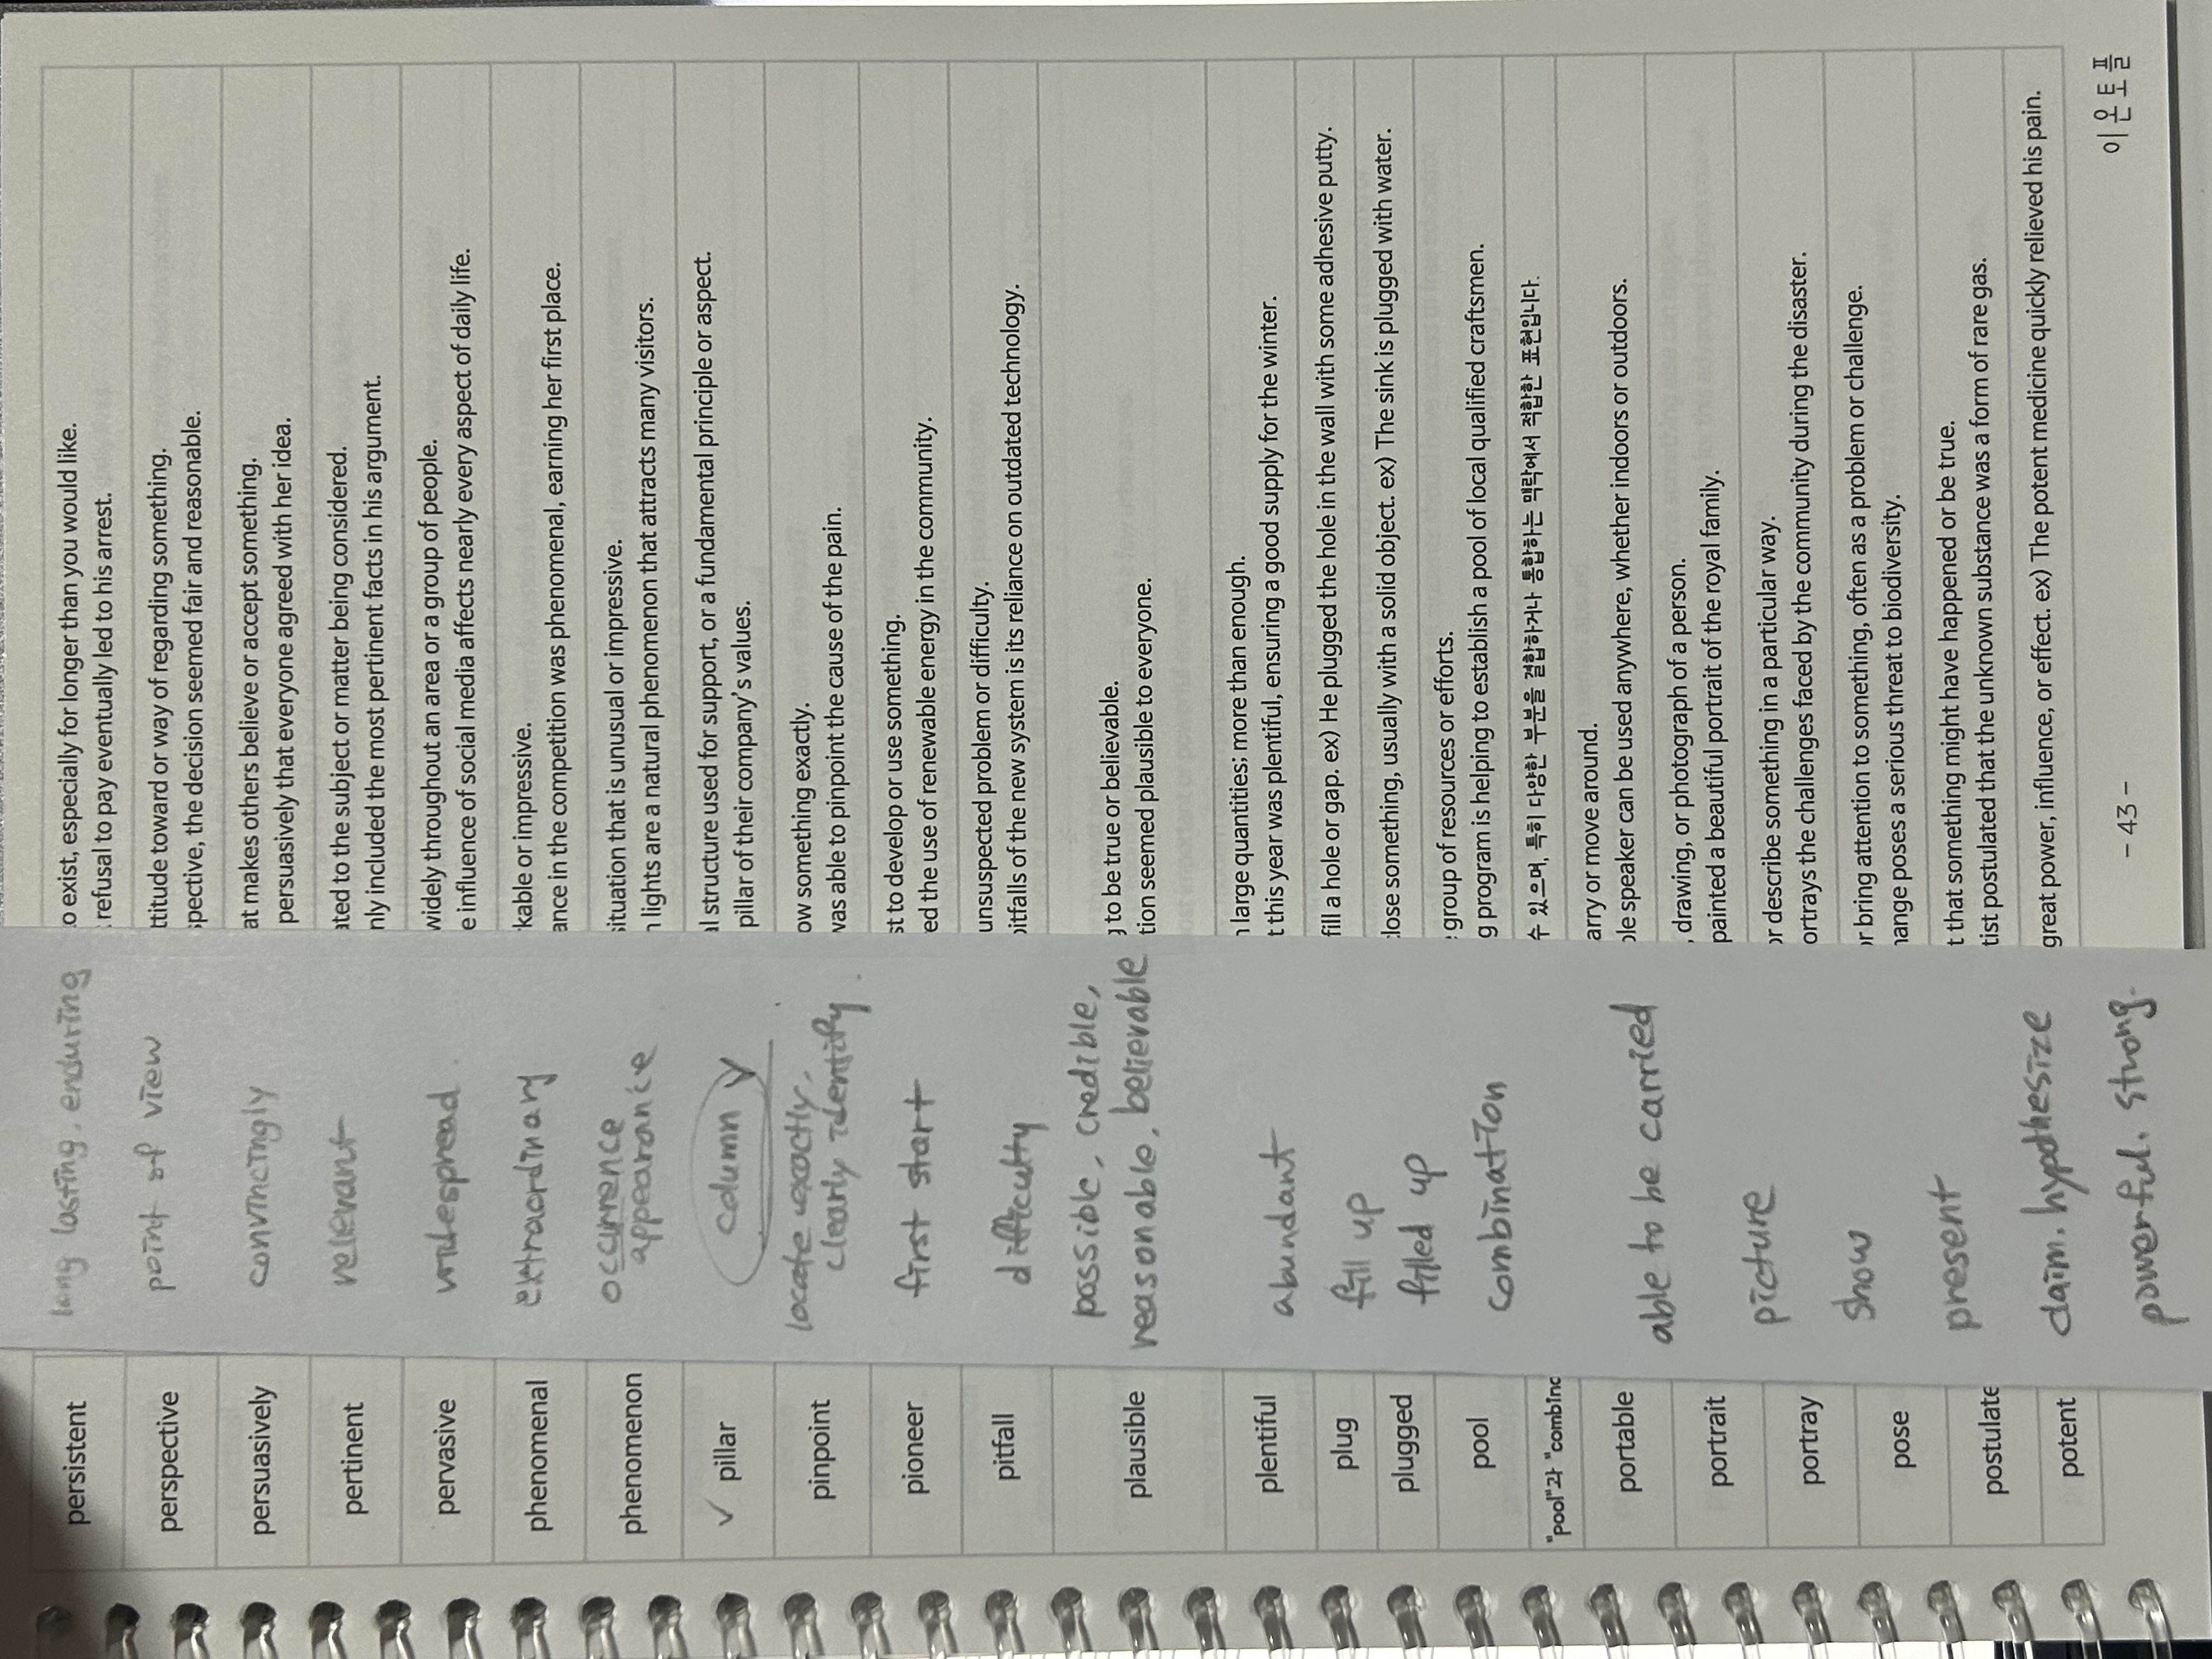 persistent
long lasting, enduring
o exist, especially for longer than you would like.
refusal to pay eventually led to his arrest.
perspective
point of view
ttitude toward or way of regarding something.
spective, the decision seemed fair and reasonable.
persuasively
convincingly
at makes others believe or accept something.
persuasively that everyone agreed with her idea.
pertinent
relevant
ated to the subject or matter being considered.
nly included the most pertinent facts in his argument.
pervasive
widespread.
widely throughout an area or a group of people.
e influence of social media affects nearly every aspect of daily life.
phenomenal
extraordinary
kable or impressive.
ance in the competition was phenomenal, earning her first place.
phenomenon
occurrence
appearance
situation that is unusual or impressive.
n lights are a natural phenomenon that attracts many visitors.
✓ pillar
column
al structure used for support, or a fundamental principle or aspect.
pillar of their company's values.
pinpoint
locate exactly,
clearly identify.
ow something exactly.
was able to pinpoint the cause of the pain.
pioneer
first start
st to develop or use something.
ed the use of renewable energy in the community.
pitfall
difficulty
unsuspected problem or difficulty.
pitfalls of the new system is its reliance on outdated technology.
plausible
possible, credible,
reasonable, believable
g to be true or believable.
tion seemed plausible to everyone.
plentiful
abundant
n large quantities; more than enough.
t this year was plentiful, ensuring a good supply for the winter.
plug
fill up
fill a hole or gap. ex) He plugged the hole in the wall with some adhesive putty.
plugged
filled up
close something, usually with a solid object. ex) The sink is plugged with water.
pool
combination
group of resources or efforts.
g program is helping to establish a pool of local qualified craftsmen.
"pool"과 "combinc
수 있으며, 특히 다양한 부분을 결합하거나 통합하는 맥락에서 적합한 표현입니다.
portable
able to be carried
arry or move around.
ble speaker can be used anywhere, whether indoors or outdoors.
portrait
picture
, drawing, or photograph of a person.
painted a beautiful portrait of the royal family.
portray
show
or describe something in a particular way.
ortrays the challenges faced by the community during the disaster.
pose
present
or bring attention to something, often as a problem or challenge.
hange poses a serious threat to biodiversity.
postulate
claim. hypothesize
t that something might have happened or be true.
tist postulated that the unknown substance was a form of rare gas.
potent
powerful. strong.
great power, influence, or effect. ex) The potent medicine quickly relieved his pain.
– 43 –
이온토플